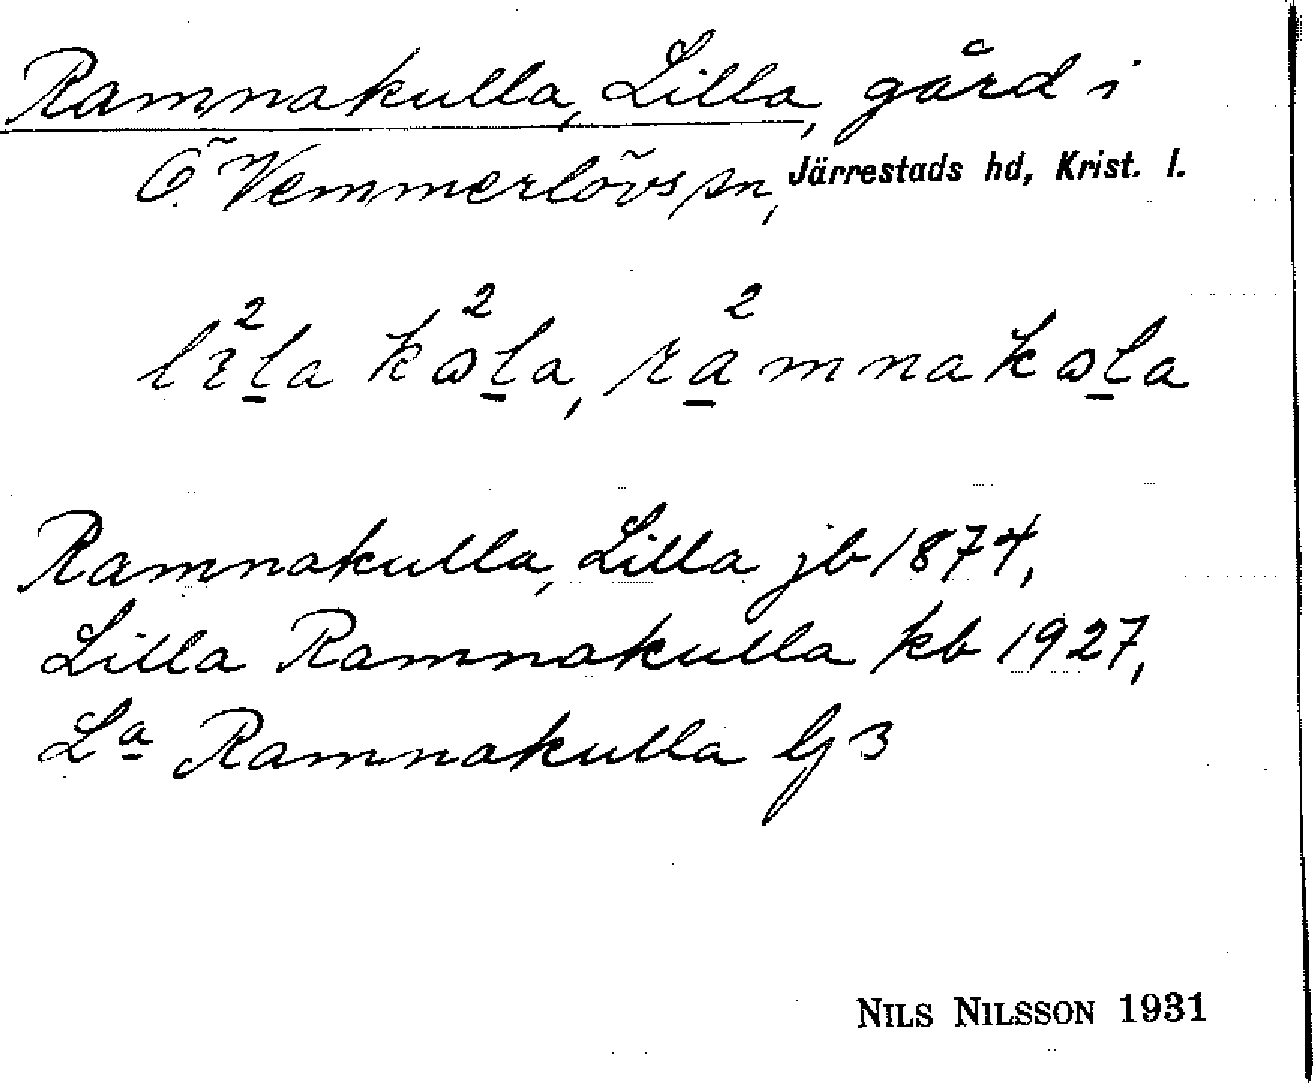 Ramnakulla, Lilla, gård i
Ö. Vemmerlövs sn, Järrestads hd, Krist. l.
lɪ²l̲a kω²l̲a, ra̲²mnakωl̲a
Ramnakulla, Lilla jb 1874,
Lilla Ramnakulla kb 1927,
La Ramnakulla Gj 3
NILS NILSSON 1931